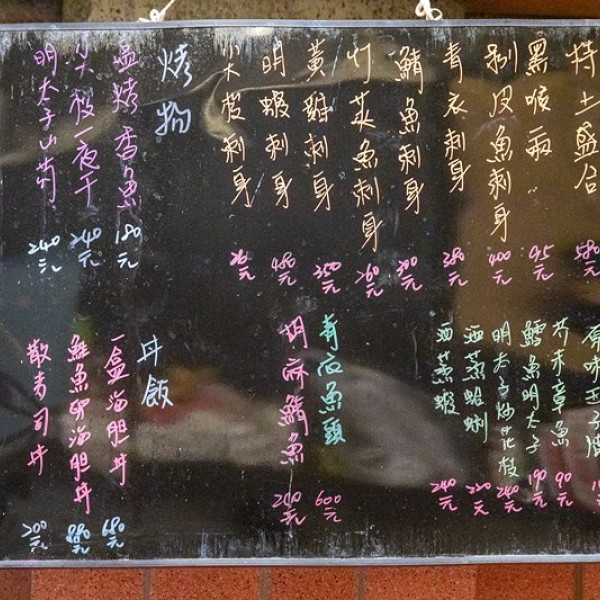 特上盛合 580元
黑喉兩 95元
剝皮魚刺身 400元
青衣刺身 380元
鯖魚刺身 300元
竹筴魚刺身 260元
黃雞刺身 350元
明蝦刺身 480元
刺身 元
烤物
鹽烤香魚 180元
一夜干 240元
明太子山菊 240元
原味玉子
芥末章魚 90元
鱈魚明太子 190元
明太子炒花枝 240元
酒蒸蝦蜊 220元
酒蒸蝦 240元
青衣魚頭 600元
胡麻鯖魚 200元
丼飯
一盒海胆丼 680元
鮭魚卵海胆丼 880元
散壽司丼 200元